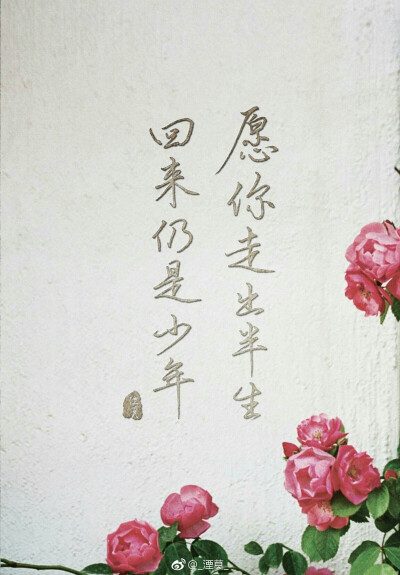 愿你走出半生
回来仍是少年
@_潭莫